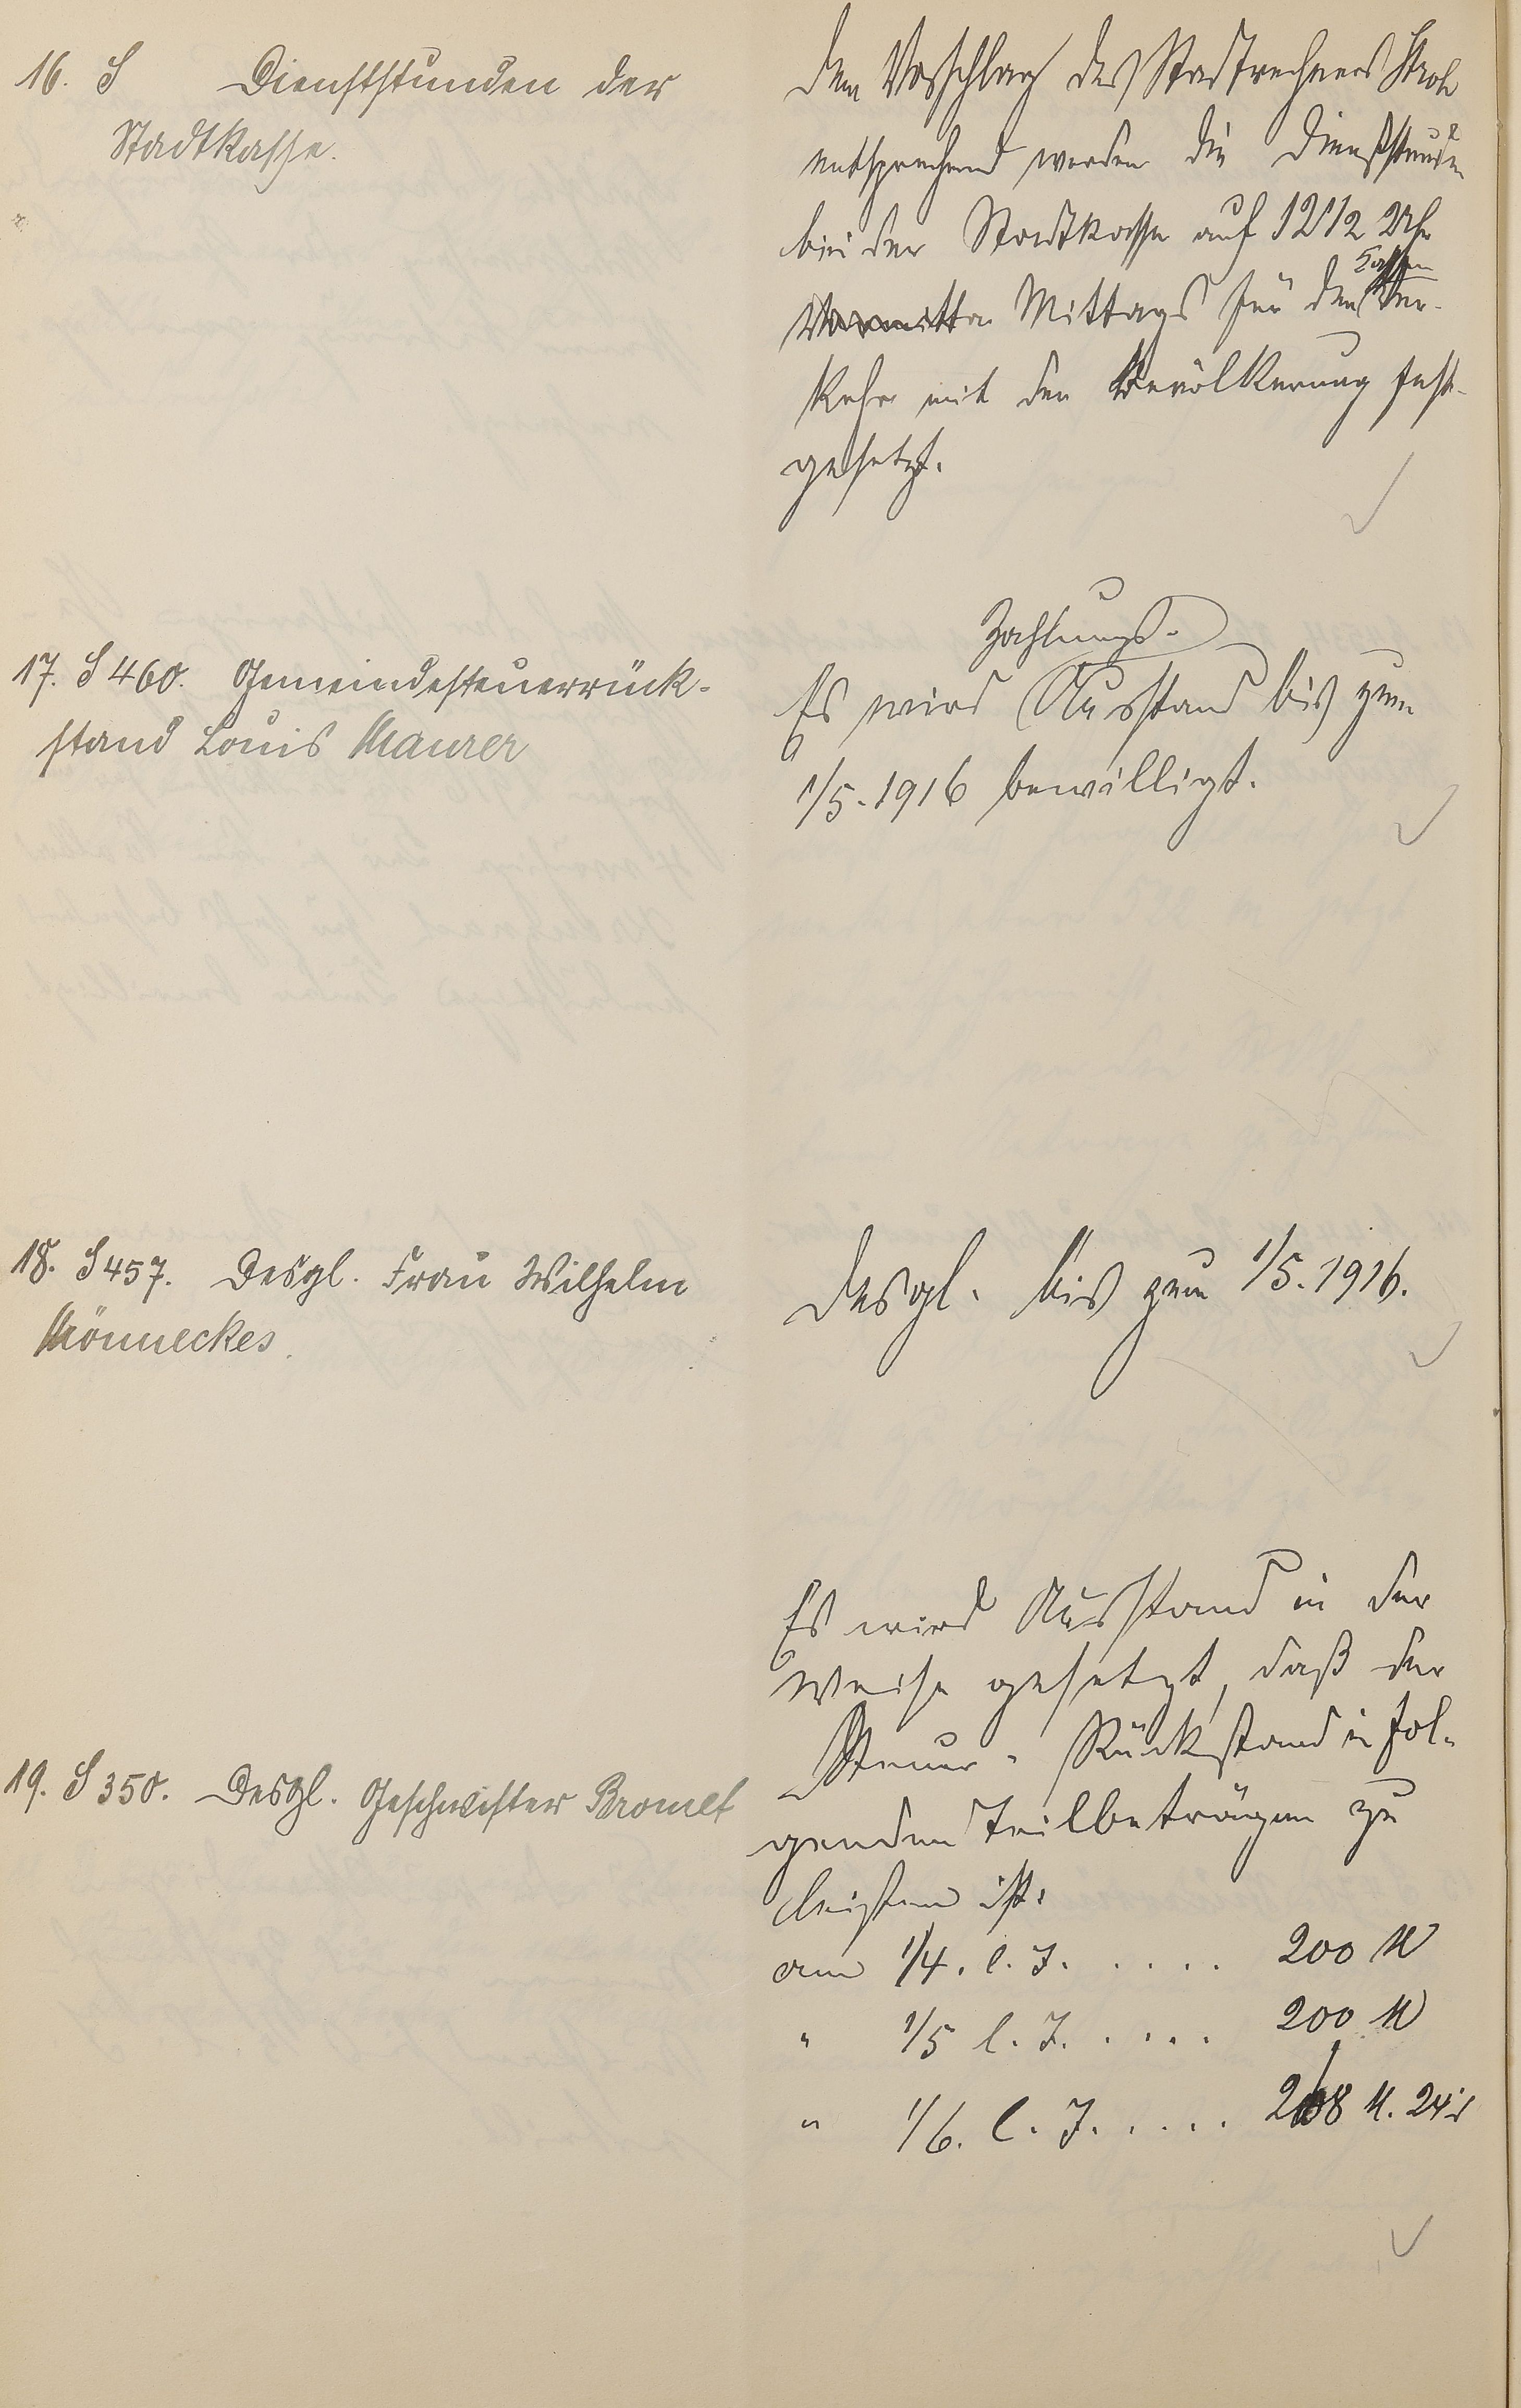 16. S Dienststunden der
Stadtkasse.
Dem Vorschlag des Stadtrechners Stroh
entsprechend werden die Dienststunden
bei der Stadtkasse auf 12 1/2 Uhr
Vormitta Mittags für den Kassen
Ver-
kehr mit der Bevölkerung fest-
gesetzt.
17. S 460. Gemeindesteuerrück-
stand Louis Maurer
Zahlungs-
Es wird Ausstand bis zum
1/5. 1916 bewilligt.
18. S 457. Desgl. Frau Wilhelm
Mönneckes.
Desgl. bis zum 1/5. 1916.
19. S 350. Desgl. Geschwister Bromet
Es wird Ausstand in der
Weise gesetzt, daß der
Steuer-Rückstand in fol-
genden Teilbeträgen zu
leisten ist:
am 1/4. l. J. .... 200 M
" 1/5 l. J. .... 200 M
" 1/6. l. J. .... 268 M. 24 d